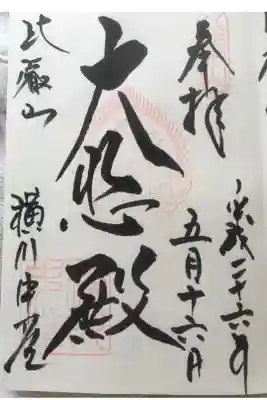 奉拝
平成二十六年
五月十六日
大悲殿
比叡山
横川中堂